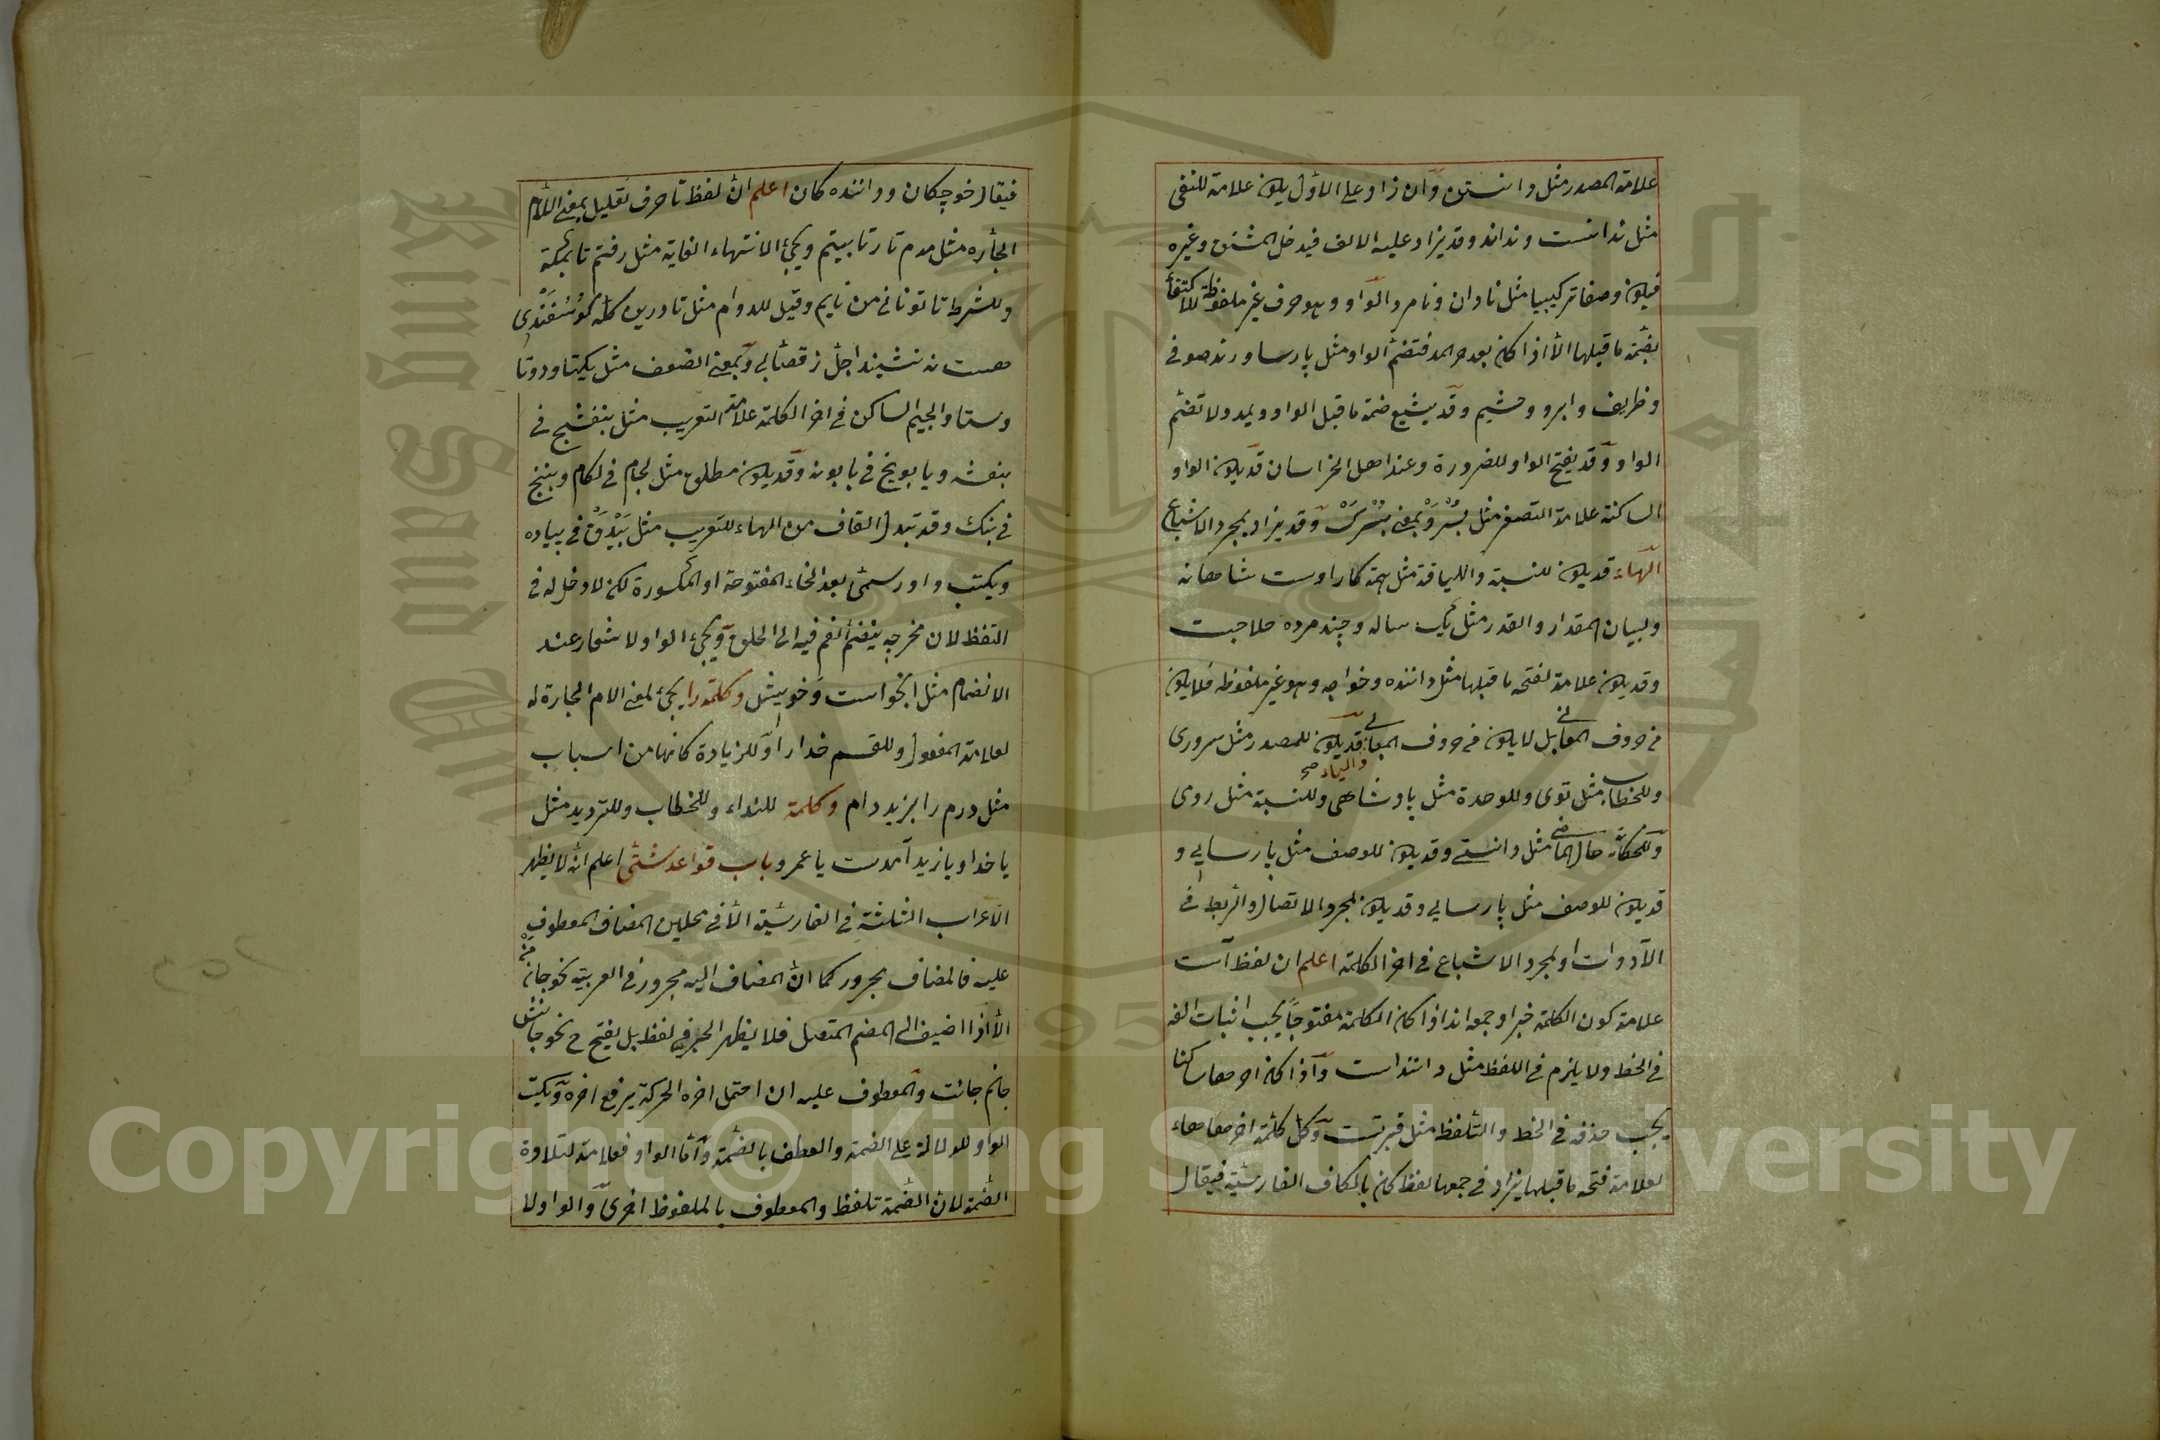 علامة المصدر مثل دانستن وان زاد على الاول يكون علامة للنفى
مثل ندانست ونداند وقد يزاد عليه الالف فيدخل المشتق وغيره
فيكون وصفا تركيبيا مثل نادان ونامرد الواو وهو حرف غير ملفوظة للاكتفأ
بضمة ما قبلها الا اذا كان بعد حرالمد فتضم الواو مثل پارسا ورند صوفى
وظريف وابرو وچشم وقد يشبع ضمة ما قبل الواو ويمد ولا تضم
الواو وقد يفتح الواو للضرورة وعند اهل الخراسان قد يكون الواو
الساكنة علامة التصغير مثل پسرو بمعنى پسرك وقد يزاد بمجرد الاشباع
الهاء قد يكون للنسبة واللياقة مثل همة كاراوست شاهانه
ولبيان المقدار والقدر مثل يك ساله وچند مرده حلاجست
وقد يكون علامة لفتحه ما قبلها مثل داننده وخواجه وهو غير ملفوظه فلا يكون
فى حروف المعانى بل لا يكون فى حروف المعانى والياء صح قد يكون للمصدر مثل سرورى
وللخطاب مثل توى وللوحدة مثل پادشاهى وللنسبة مثل روى
وللحكاية حال الماضى مثل دانستى وقد يكون للوصف مثل پارسايى و
قد يكون للوصف مثل پارسايى وقد يكون لمجرد الاتصال والربط فى
الادوات او لمجرد الاشباع فى اخر الكلمة اعلم ان لفظ است
علامة كون الكلمة خبرا وجمعه اند اذا كان الكلمة مفتوحا يجب اثبات الفه
فى الخط ولا يلزم فى اللفظ مثل داننداست واذا كان اخرها ساكنا
يجب حذفه فى الخط والتلفظ مثل قبرتست وكل كلمة اخرها هاء
لعلامة فتحه ما قبلها يزاد فى جمعها لفظ كان بالكاف الفارسية فيقال
فيقال خوجكان وداننده كان اعلم ان لفظ تا حرف تعليل بمعنى اللام
الجاره مثل مدم تا رتا بيتم ويجئ الانتهاء الغاية مثل رفتم تا بمكة
وللشرط تا تو نانى من نايم وقيل للدوام مثل تا درين كله گوسفندى
هست نه نشيند اجل ز قصابى وبمعنى الضعف مثل يكتا ودوتا
وستا والجيم الساكن فى اخر الكلمة علامة التعريب مثل بنفشج فى
بنفشه وبابونج فى بابونه وقد يكون مطلق مثل لجام فى لكام وبنج
فى بنك وقد تبدل القاف من الهاء للتعريب مثل بيدق فى پياده
ويكتب واو رسمى بعد الخاء المفتوحة او المكسورة لكن لا دخل له فى
التفظ لان مخرجه ينضم الفم فيه الى الحلق ويجئ الواو لاشعار عند
الانضمام مثل انخواست وخويش وكلمة را يجئ لمعنى الام الجارة له
لعلامة المفعول وللقسم خدارا او للزيادة كانها من اسباب
مثل درم را بزيد دام وكلمة للنداء وللخطاب وللترديد مثل
يا خدا ويا زيد آمدست يا عمرو باب قواعد شتى اعلم ان لا يظهر
الاعراب الثلثة فى الفارسية الا فى محلين المضاف المعطوف
عليه فالمضاف مجرور كما ان المضاف اليه مجرور فى العربية نحو جان من
الا اذا اضيف الى المضم المتصل فلا يظهر الجر فى لفظ بل يفتح ح نحو جانش
جانم جانت والمعطوف عليه ان احتمل اخره الحركة يرفع اخره ويكتب
الواو للدلالة على الضمة والعطف بالضمة واما الواو فعلامة لتلاوة
الضمة لان الضمة تلفظ والمعطوف بالملفوظ احرى والواو لا
Copyright © King Saud University